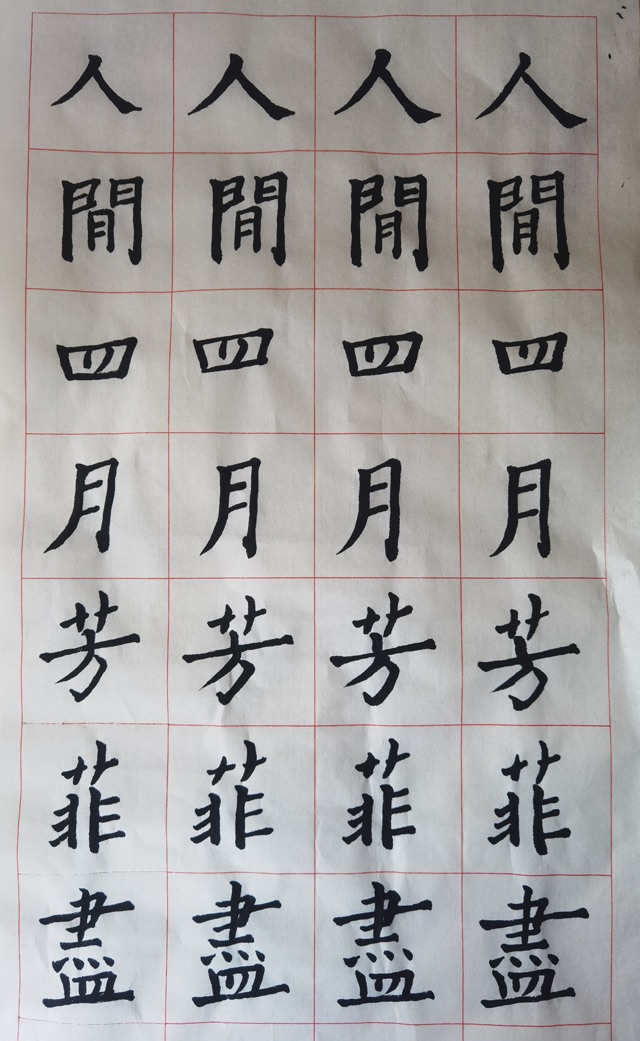 人人人人
閒閒閒閒
四四四四
月月月月
芳芳芳芳
菲菲菲菲
盡盡盡盡